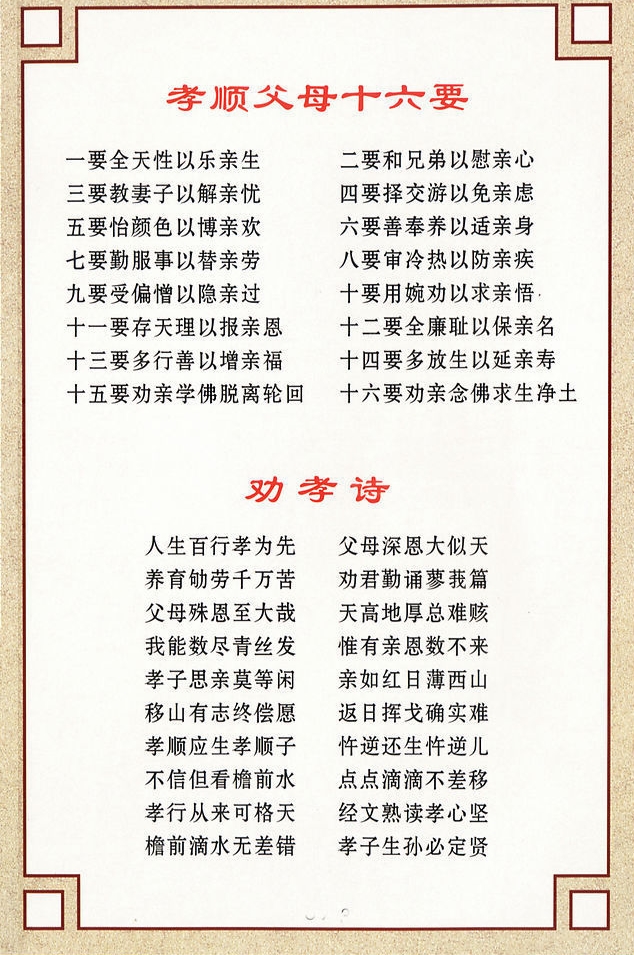 孝顺父母十六要
一要全天性以乐亲生 二要和兄弟以慰亲心
三要教妻子以解亲忧 四要择交游以免亲虑
五要怡颜色以博亲欢 六要善奉养以适亲身
七要勤服事以替亲劳 八要审冷热以防亲疾
九要受偏憎以隐亲过 十要用婉劝以求亲悟
十一要存天理以报亲恩 十二要全廉耻以保亲名
十三要多行善以增亲福 十四要多放生以延亲寿
十五要劝亲学佛脱离轮回 十六要劝亲念佛求生净土
劝孝诗
人生百行孝为先 父母深恩大似天
养育劬劳千万苦 劝君勤诵蓼莪篇
父母殊恩至大哉 天高地厚总难赅
我能数尽青丝发 惟有亲恩数不来
孝子思亲莫等闲 亲如红日薄西山
移山有志终偿愿 返日挥戈确实难
孝顺应生孝顺子 忤逆还生忤逆儿
不信但看檐前水 点点滴滴不差移
孝行从来可格天 经文熟读孝心坚
檐前滴水无差错 孝子生孙必定贤